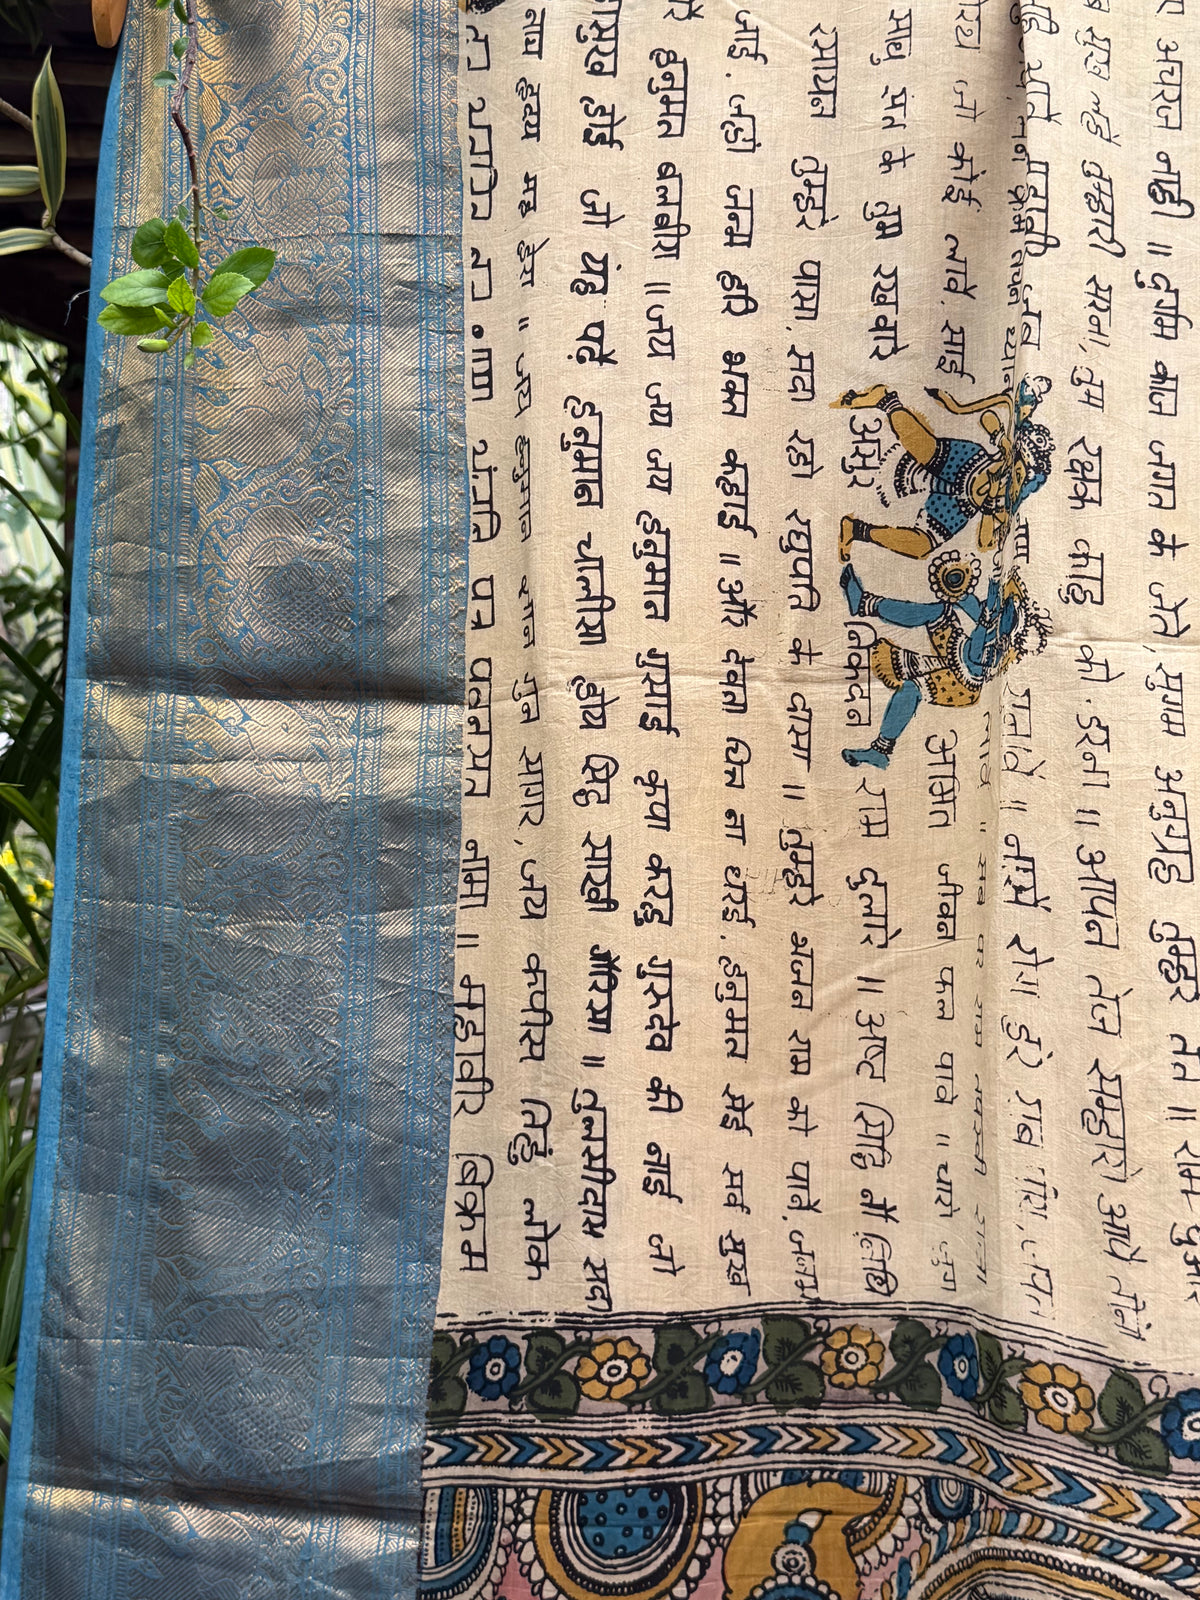 अचरज नाही ॥ दुर्गाम काज जगत के जेते, सुगम अनुग्रह तुम्हरे तेते ॥ राम दुआरे
सुख लहें तुम्हारी सरना, तुम रक्षक काहु को डरना ॥ आपन तेज सम्हारो आपे तीनो
आवें, महावीर जब सुनावें ॥ नासें रोग हरे सब पीरा, जपत
क्रम वचन ध्यान लावे ॥ सब पर राम तपस्वी राजा
जो कोई लावें, साई अमित जीवन फल पावे ॥ चारो जुग
साधु संत के तुम रखवारे असुर निकंदन राम दुलारे ॥ अष्ट सिद्धि नौं निधि
रसायन तुम्हरे पासा, सदा रहो रघुपति के दासा ॥ तुम्हरे भजन राम को पावें, जनम
जाई, जहां जन्म हरि भक्त कहाई ॥ और देवता चित्त ना धरई, हनुमत सेई सर्व सुख
हनुमत बलबीरा ॥ जय जय जय हनुमान गुसाई कृपा करहु गुरुदेव की नाई जो
होई जो यह पढ़ें हनुमान चालीसा होय सिद्ध साखी गौरीसा ॥ तुलसीदास सदा
नाथ हृदय मह डेरा ॥ जय हनुमान ज्ञान गुन सागर, जय कपीस तिहुं लोक
अंजनि पुत्र पवनसुत नामा ॥ महावीर बिक्रम